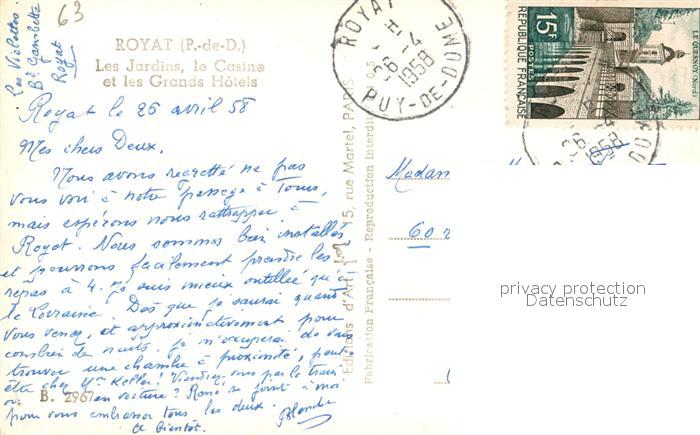 63
Les Violettes
Bd Gambetta
Royat
ROYAT (P.-de-D.)
Les Jardins, le Casino
et les Grands Hôtels
Royat le 26 avril 58
Mes chers Deux.
Nous avons regretté ne pas
vous voir à notre passage à Tours,
mais espérons nous rattrapper à
Royat. Nous sommes bien installés
et pourrons facilement prendre les
repas à 4. Je suis mieux outillée qu'à
la Lorraine. Dès que je saurai quand
vous venez, et approximativement pour
combien de nuits, je m'occuperai de vous
trouver une chambre à proximité, peut
être chez Mme Keller! Viendrez-vous par le train
ou en voiture? René se joint à moi
pour vous embrasser tous les deux.
A bientôt.
B. 2967
Editions d'Art
15, rue Martel, PARIS
Fabrication Française - Reproduction Interdite
ROYAT
26-4
1958
PUY-DE-DOME
15F
REPUBLIQUE FRANÇAISE
POSTES
LE QUESNOY (Nord)
26
1958
DOME
Madam
60
privacy protection
Datenschutz